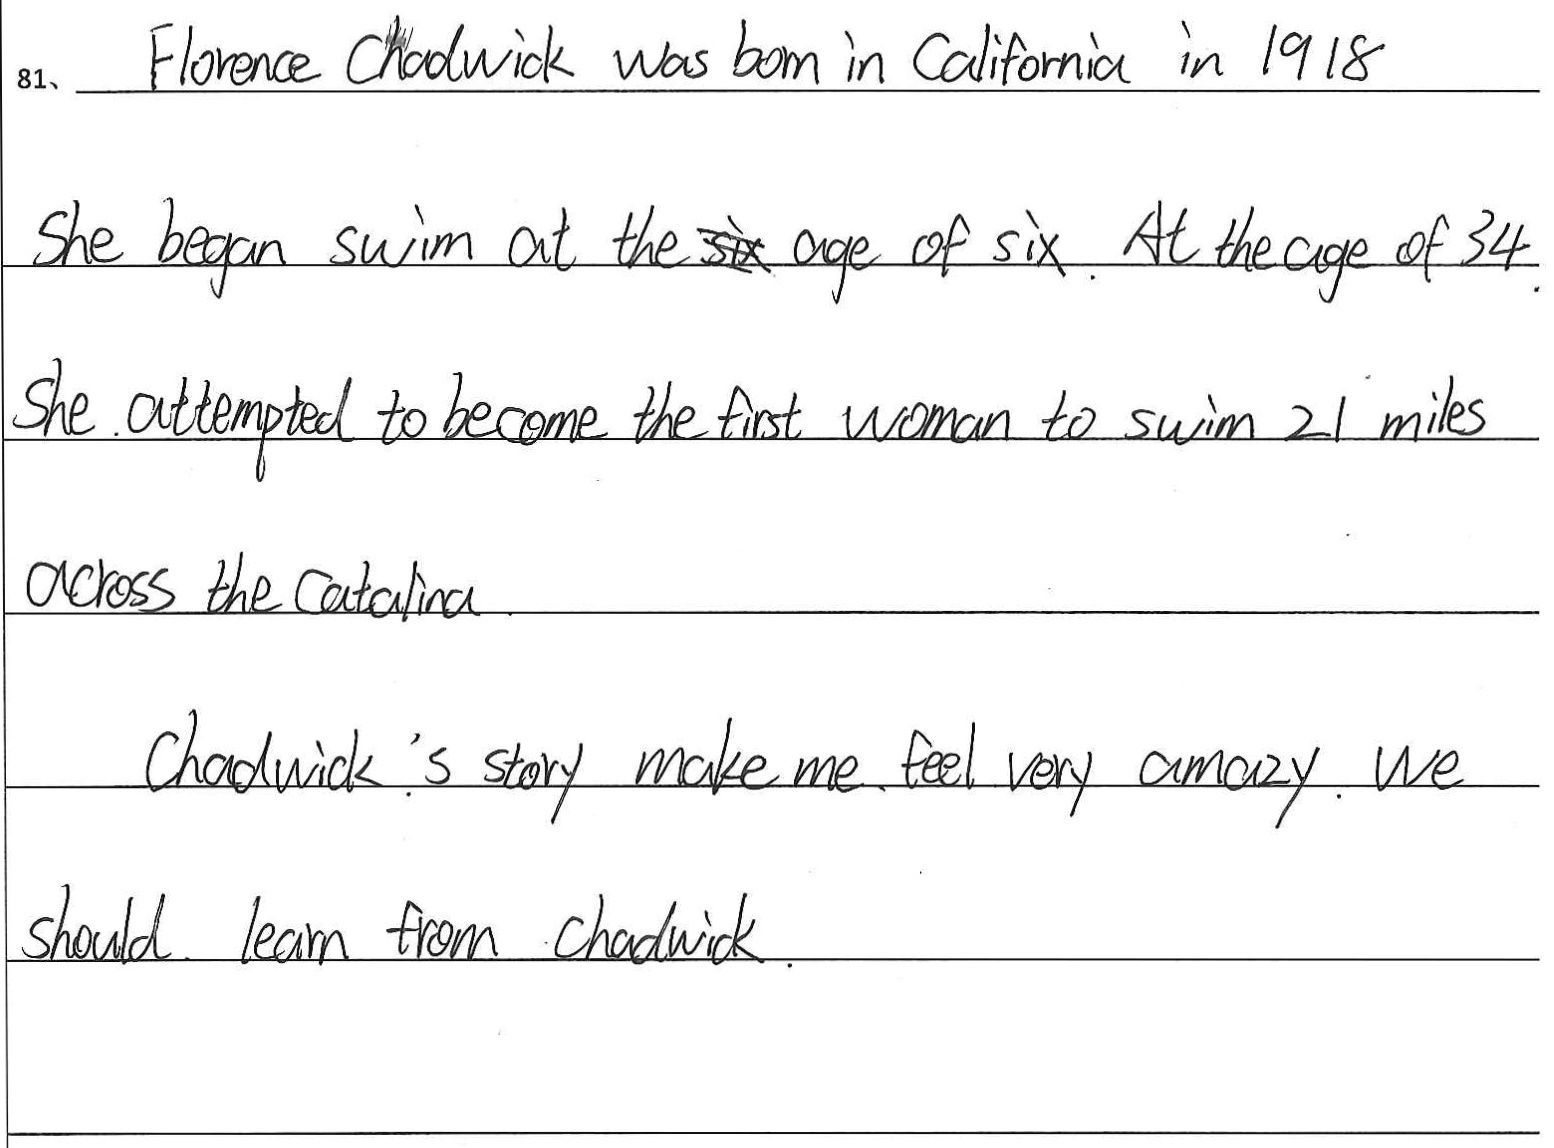 81、 Florence Chadwick was born in California in 1918
She began swim at the age of six. At the age of 34.
She attempted to become the first woman to swim 21 miles
across the Catalina
Chadwick's story make me feel very amazy. We
should learn from Chadwick.